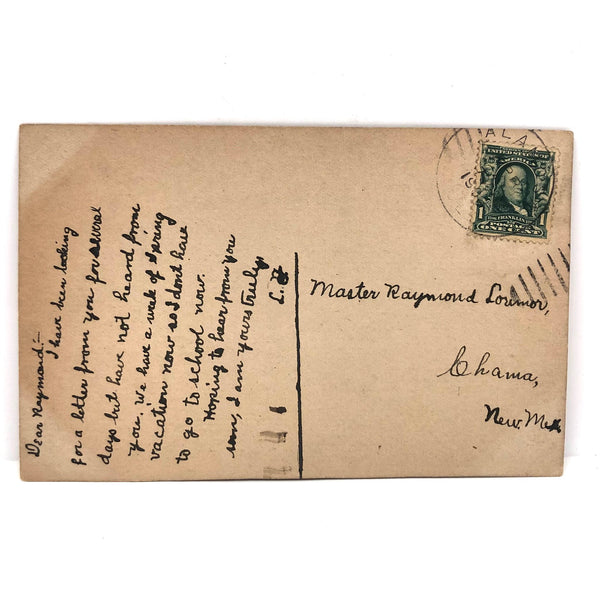 Dear Raymond:—
I have been looking
for a letter from you for several
days but have not heard from
you. We have a week of spring
vacation now so I don't have
to go to school now.
Hoping to hear from you
soon, I am yours truly
ALA
19
UNITED STATES OF
AMERICA
1
FRANKLIN
POSTAGE
ONE CENT
Master Raymond
Chama,
New Mex